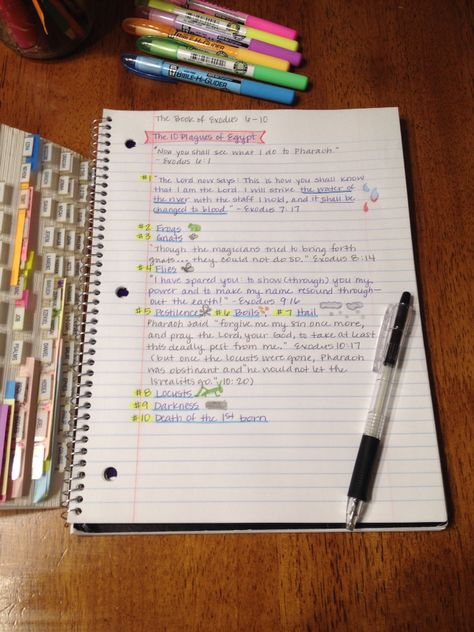 BIBLE-HI-GLIDER
BIBLE-HI-GLIDER
The Book of Exodus 6-10
The 10 Plagues of Egypt
"Now you shall see what I do to Pharaoh."
- Exodus 6:1
#1 "The Lord now says: This is how you shall know
that I am the Lord. I will strike the water of
the river with the staff I hold, and it shall be
changed to blood." - Exodus 7:17
#2 Frogs
#3 Gnats
"Though the magicians tried to bring forth
gnats... they could not do so." Exodus 8:14
#4 Flies
"I have spared you: to show (through) you my
power and to make my name resound through-
out the earth!" - Exodus 9:16
#5 Pestilence #6 Boils #7 Hail
Pharaoh said "forgive me my sin once more,
and pray the Lord, your God, to take at least
this deadly pest from me." Exodus 10:17
(but once the locusts were gone, Pharaoh
was obstinant and "he would not let the
Isrealites go." 10:20)
#8 Locusts
#9 Darkness
#10 Death of the 1st born